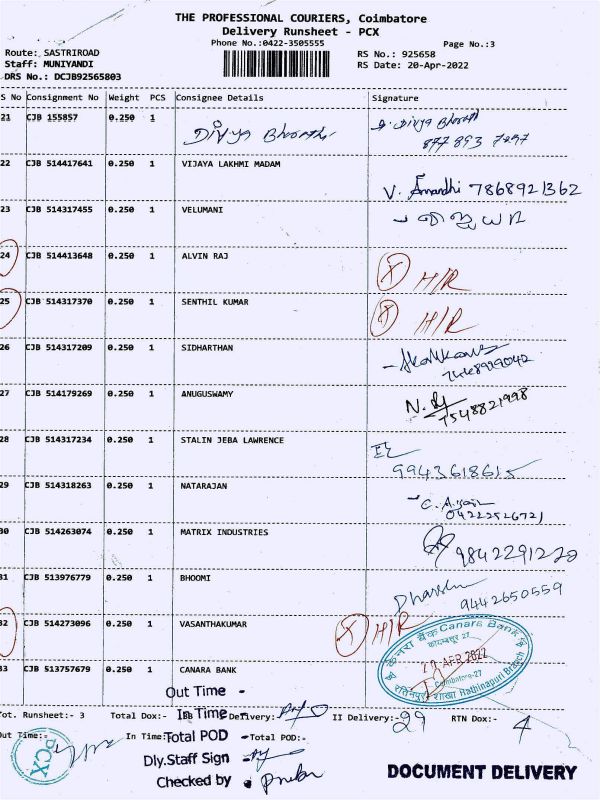 THE PROFESSIONAL COURIERS, Coimbatore
Delivery Runsheet - PCX
Phone No.:0422-3505555
Page No.:3
Route: SASTRIROAD
Staff: MUNIYANDI
DRS No.: DCJB92565803
RS No.: 925658
RS Date: 20-Apr-2022
S No Consignment No Weight PCS Consignee Details Signature
21 CJB 155857 0.250 1 Divya Bharathi Divya Bharathi
877 893 7297
22 CJB 514417641 0.250 1 VIJAYA LAKHMI MADAM
V. Anandhi 7868921362
23 CJB 514317455 0.250 1 VELUMANI
24 CJB 514413648 0.250 1 ALVIN RAJ X H/R
25 CJB 514317370 0.250 1 SENTHIL KUMAR X H/R
26 CJB 514317209 0.250 1 SIDHARTHAN
27 CJB 514179269 0.250 1 ANUGUSWAMY
7548821998
28 CJB 514317234 0.250 1 STALIN JEBA LAWRENCE
9943618615
29 CJB 514318263 0.250 1 NATARAJAN
04222526721
30 CJB 514263074 0.250 1 MATRIX INDUSTRIES
31 CJB 513976779 0.250 1 BHOOMI
9442650559
32 CJB 514273096 0.250 1 VASANTHAKUMAR X H/R
33 CJB 513757679 0.250 1 CANARA BANK
केनरा बैंक Canara Bank
कोयम्बतूर 27
21 APR 2022
Coimbatore-27
शाखा Rathinapuri Branch
Out Time -
Tot. Runsheet:- 3 Total Dox:- In Time - Delivery:- II Delivery:- 29 RTN Dox:- 4
Out Time:- In Time: Total POD - Total POD:-
PCX
Dly.Staff Sign -
Checked by -
DOCUMENT DELIVERY